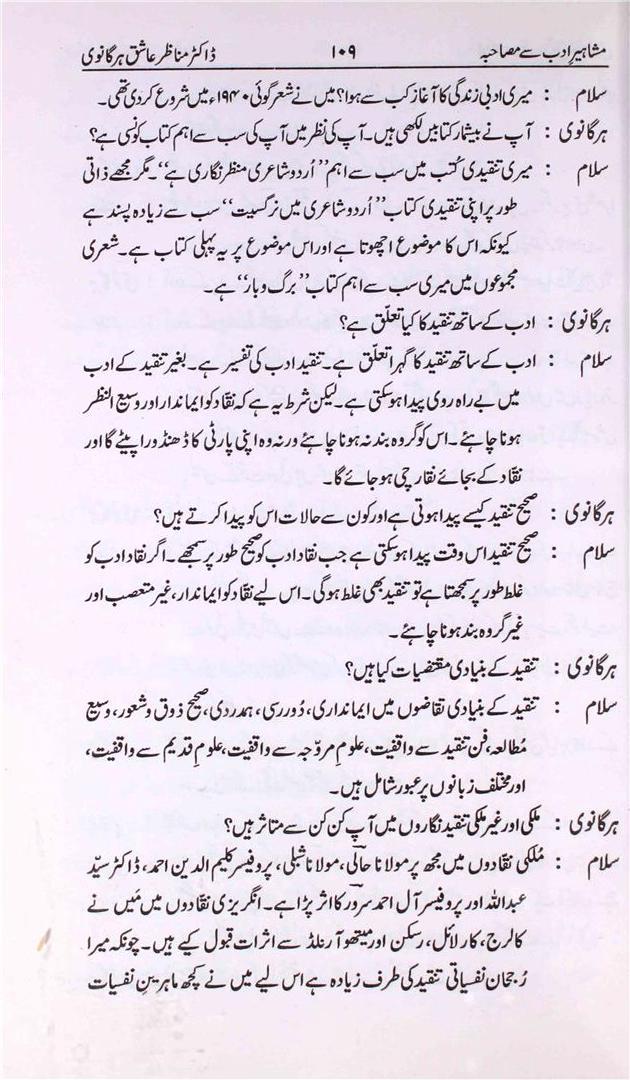 مشاہیر ادب سے مصاحبہ ۱۰۹ ڈاکٹر مناظر عاشق ہرگانوی
سلام : میری ادبی زندگی کا آغاز کب سے ہوا؟ میں نے شعر گوئی ۱۹۴۰ء میں شروع کر دی تھی۔
ہرگانوی : آپ نے بیشمار کتابیں لکھی ہیں۔ آپ کی نظر میں آپ کی سب سے اہم کتاب کونسی ہے؟
سلام : میری تنقیدی کُتب میں سب سے اہم ’’اُردو شاعری منظر نگاری ہے‘‘۔ مگر مجھے ذاتی
طور پر اپنی تنقیدی کتاب ’’اُردو شاعری میں نرگسیت‘‘ سب سے زیادہ پسند ہے
کیونکہ اس کا موضوع اچھوتا ہے اور اس موضوع پر یہ پہلی کتاب ہے۔ شعری
مجموعوں میں میری سب سے اہم کتاب ’’برگ و بار‘‘ ہے۔
ہرگانوی : ادب کے ساتھ تنقید کا کیا تعلّق ہے؟
سلام : ادب کے ساتھ تنقید کا گہرا تعلق ہے۔ تنقید ادب کی تفسیر ہے۔ بغیر تنقید کے ادب
میں بے راہ روی پیدا ہو سکتی ہے۔ لیکن شرط یہ ہے کہ نقاد کو ایماندار اور وسیع النظر
ہونا چاہئے۔ اس کو گروہ بند نہ ہونا چاہئے ورنہ وہ اپنی پارٹی کا ڈھنڈورا پیٹے گا اور
نقاد کے بجائے نقارچی ہو جائے گا۔
ہرگانوی : صحیح تنقید کیسے پیدا ہوتی ہے اور کون سے حالات اس کو پیدا کرتے ہیں؟
سلام : صحیح تنقید اس وقت پیدا ہو سکتی ہے جب نقاد ادب کو صحیح طور پر سمجھے۔ اگر نقاد ادب کو
غلط طور پر سمجھتا ہے تو تنقید بھی غلط ہوگی۔ اس لیے نقاد کو ایماندار، غیر متعصب اور
غیر گروہ بند ہونا چاہئے۔
ہرگانوی : تنقید کے بنیادی مقتضیات کیا ہیں؟
سلام : تنقید کے بنیادی تقاضوں میں ایمانداری، دُوررسی، ہمدردی، صحیح ذوق و شعور، وسیع
مُطالعہ، فن تنقید سے واقفیت، علوم مروّجہ سے واقفیت، علوم قدیم سے واقفیت،
اور مختلف زبانوں پر عبور شامل ہیں۔
ہرگانوی : ملکی اور غیر ملکی تنقید نگاروں میں آپ کن کن سے متاثر ہیں؟
سلام : مُلکی نقادوں میں مجھ پر مولانا حالیؔ، مولانا شبلی، پروفیسر کلیم الدین احمد، ڈاکٹر سیّد
عبداللہ اور پروفیسر آل احمد سرورؔ کا اثر پڑا ہے۔ انگریزی نقادوں میں مَیں نے
کالرج، کارلائل، رسکن اور میتھو آرنلڈ سے اثرات قبول کیے ہیں۔ چونکہ میرا
رُجمان نفسیاتی تنقید کی طرف زیادہ ہے اس لیے میں نے کچھ ماہرین نفسیات